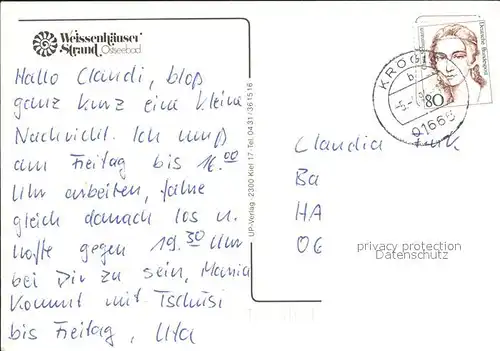 Weissenhäuser
Strand Ostseebad
Hallo Claudi, bloß
ganz kurz eine kleine
Nachricht. Ich muß
am Freitag bis 16.00
Uhr arbeiten, fahre
gleich danach los u.
hoffe gegen 19.30 Uhr
bei Dir zu sein, Mama
kommt mit Tschüsi
bis Freitag, Uta
UP-Verlag 2300 Kiel 17 Tel. 0431/361516
Deutsche Bundespost
80
KRÖ
b
-5.-
Claudia
Ba
HA
OE
privacy protection
Datenschutz